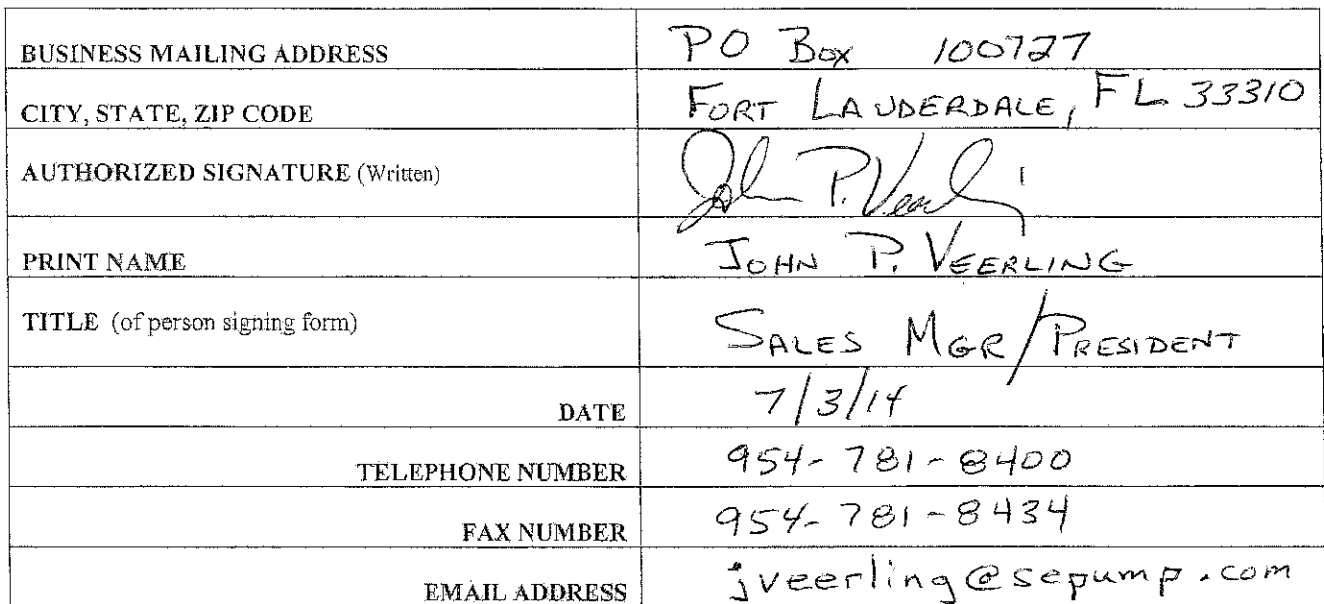 BUSINESS MAILING ADDRESS PO Box 100727
CITY, STATE, ZIP CODE FORT LAUDERDALE, FL 33310
AUTHORIZED SIGNATURE (Written) John P. Veerling
PRINT NAME JOHN P. VEERLING
TITLE (of person signing form) SALES MGR/PRESIDENT
DATE 7/3/14
TELEPHONE NUMBER 954-781-8400
FAX NUMBER 954-781-8434
EMAIL ADDRESS jveerling@sepump.com